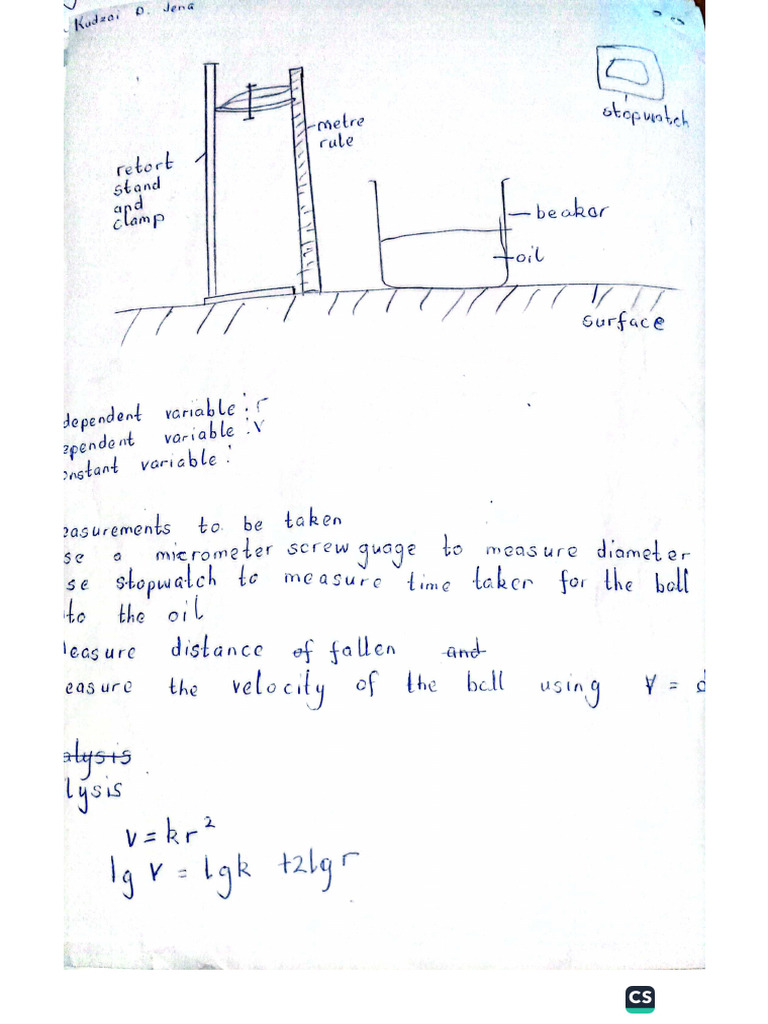 Kudzai D. Jena
stopwatch
metre
rule
retort
stand
and
clamp
beakar
oil
surface
dependent variable : r
ependent variable : v
onstant variable :
easurements to be taken
se a micrometer screw guage to measure diameter
se stopwatch to measure time taken for the ball
to the oil
easure distance of fallen and
easure the velocity of the ball using V = d
alysis
lysis
v = kr²
lg V = lgk +2lgr
CS